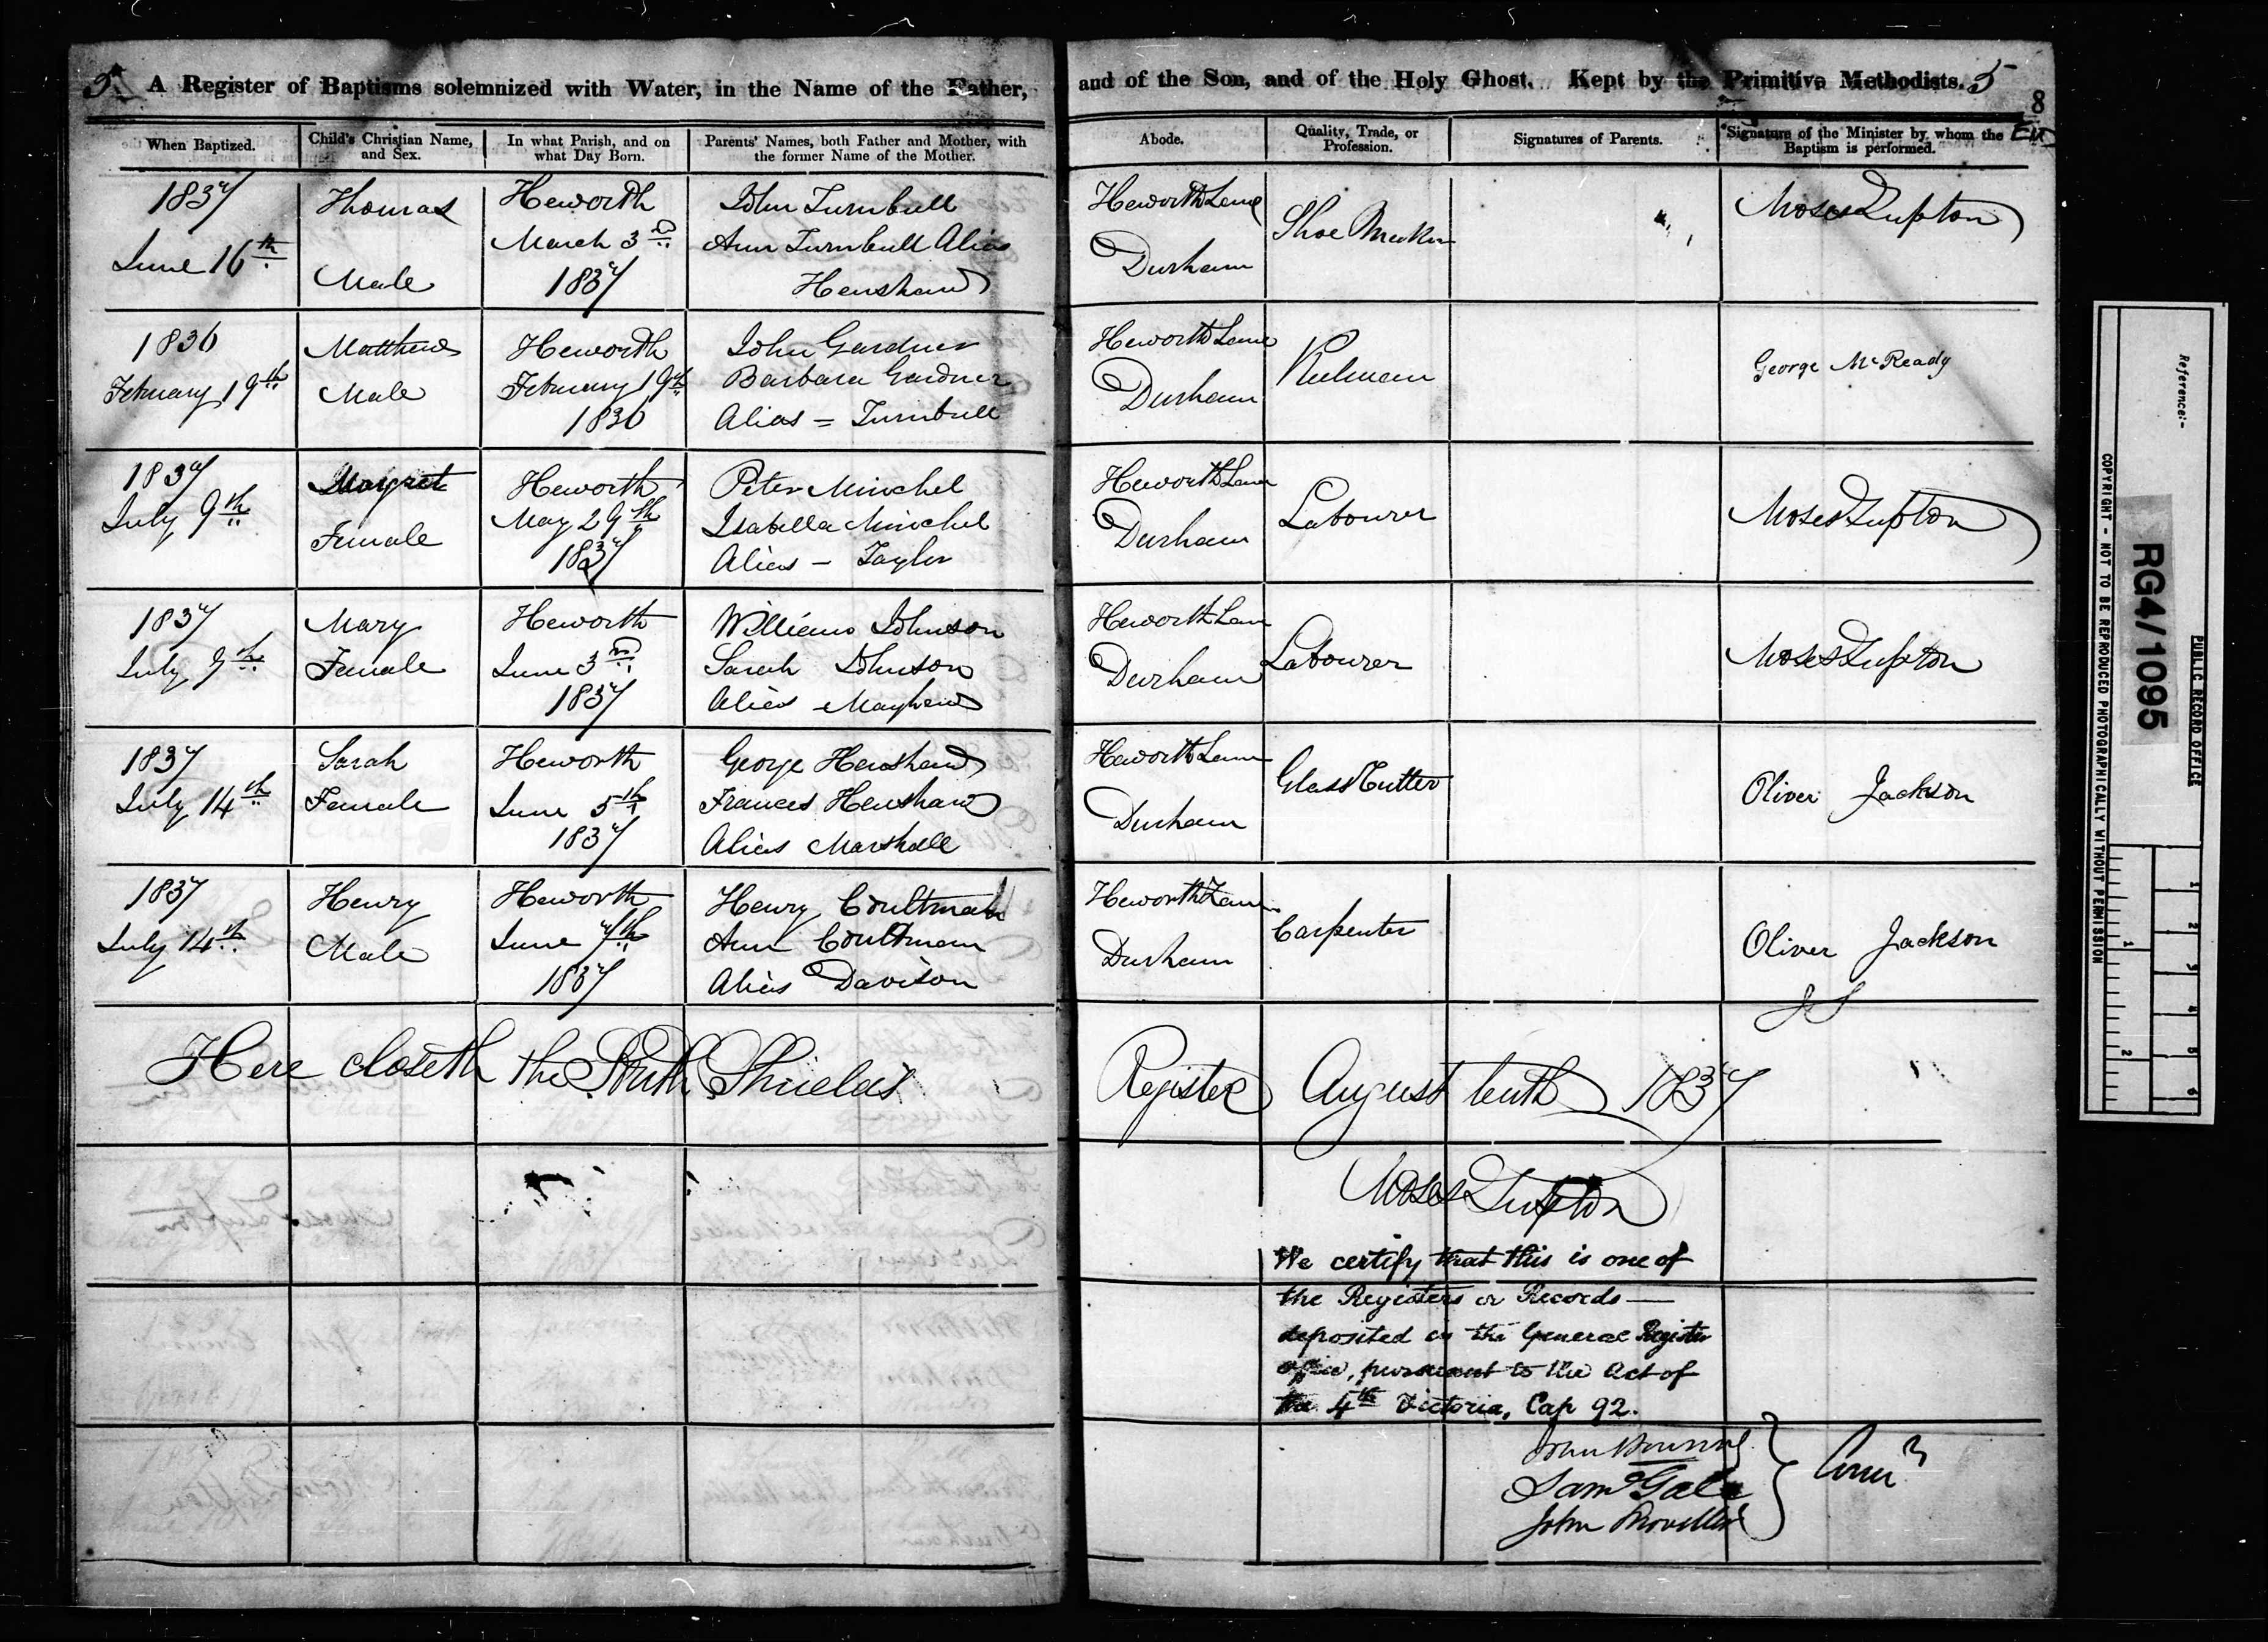 5. A Register of Baptisms solemnized with Water, in the Name of the Father, and of the Son, and of the Holy Ghost. Kept by the Primitive Methodists. 5
8
When Baptized. Child's Christian Name, and Sex. In what Parish, and on what Day Born. Parents' Names, both Father and Mother, with the former Name of the Mother. Abode. Quality, Trade, or Profession. Signatures of Parents. Signature of the Minister by whom the Baptism is performed.
1837 Thomas Heworth John Turnbull Heworth Lane Shoe Maker Moses Lupton
June 16th Male March 3rd Ann Turnbull Alias Durham
1837 Henshaw
1836 Matthew Heworth John Gardner Heworth Lane Keelman George McReady
February 19th Male February 19th Barbara Gardner Durham
1836 Alias = Turnbull
1837 Margret Heworth Peter Minchel Heworth Lane Labourer Moses Lupton
July 9th Female May 29th Isabella Minchel Durham
1837 Alias - Taylor
1837 Mary Heworth William Johnson Heworth Lane Labourer Moses Lupton
July 9th Female June 3rd Sarah Johnson Durham
1837 Alias Mayhew
1837 Sarah Heworth George Henshaw Heworth Lane Glass Cutter Oliver Jackson
July 14th Female June 5th Frances Henshaw Durham
1837 Alias Marshall
1837 Henry Heworth Henry Coultman Heworth Lane Carpenter Oliver Jackson
July 14th Male June 7th Ann Coultman Durham
1837 Alias Davison
Here closeth the South Shields Register August tenth 1837
Moses Lupton
We certify that this is one of
the Registers or Records —
deposited in the General Register
office, pursuant to the Act of
the 4th Victoria, Cap 92.
John Bourne
Saml Gale
John Shoveller
Comrs
Reference:-
PUBLIC RECORD OFFICE
RG4/1095
COPYRIGHT - NOT TO BE REPRODUCED PHOTOGRAPHICALLY WITHOUT PERMISSION
1 2 3 4 5 6
1 2